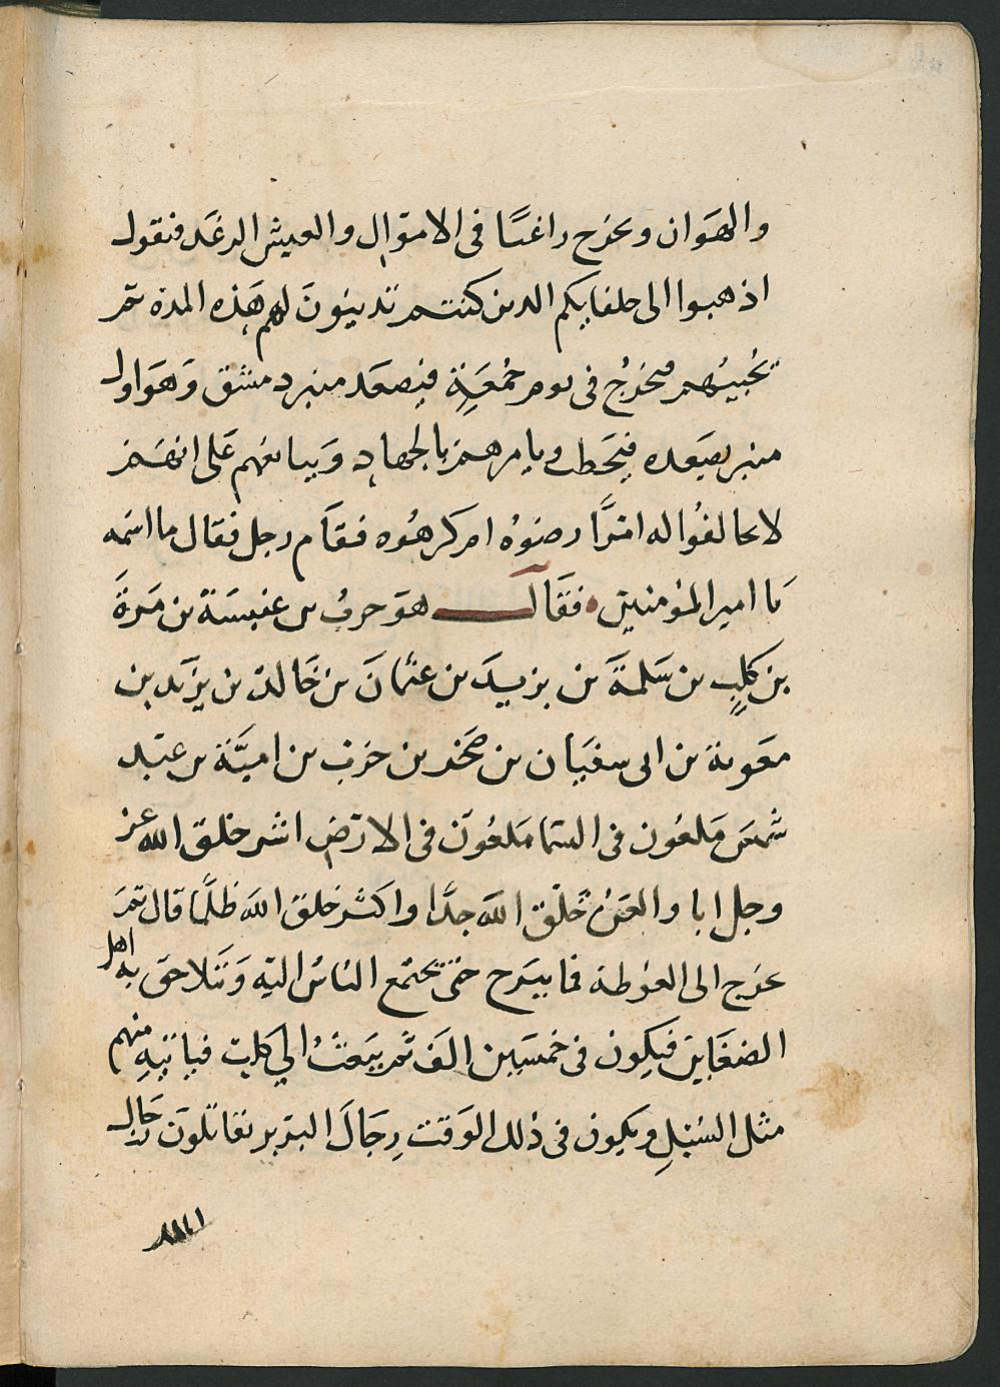 والهَوان ويخرج راغبًا فى الاموال والعيش الرغَد فنقول
اذهبوا الى خلفايكم الدين كنتم تدينونَ لهم هَذه المدة ثم
تجيبُهم فيخرُج فى يوم جُمعَةٍ فيصعَد منبر دمشق وَهوَ اول
منبر يصعَده فيخطب ويامرهم بالجهاد وَيبايعهم عَلى انهم
لا يخالفُوا له امرًا رضوُه ام كرهوُه فقام رجل فقال ما اسمه
يا امير المؤمنين فقَال هوَ حربُ بن عنبسَة بن مَرةَ
بن كلبٍ بن سَلمةَ بن يزيدَ بن عثمانَ بن خَالد بن يزَيد بن
معَوية بن ابى سفيَان بن صَخر بن حَرب بن اميَّة بن عبد
شمسَ مَلعُون فى السما مَلعُون فى الارَض اشر خلق الله عز
وجل ابا والعَنُ خَلق الله جدًّا واكثر خلق الله ظلمًا قال ثمَ
يخرج الى الغوُطة فما يبرَح حتى يجتمع الناسُ اليه وَتتلاحَق به اهل
الضغَاين فيكون فى خمسَين الف ثم يبَعثُ الي كلب فياتيهِ منهم
مثل السُيَل ويكون فى ذلك الوَقت رِجَالَ البرَبر يقاتلُونَ رجَال
الملك